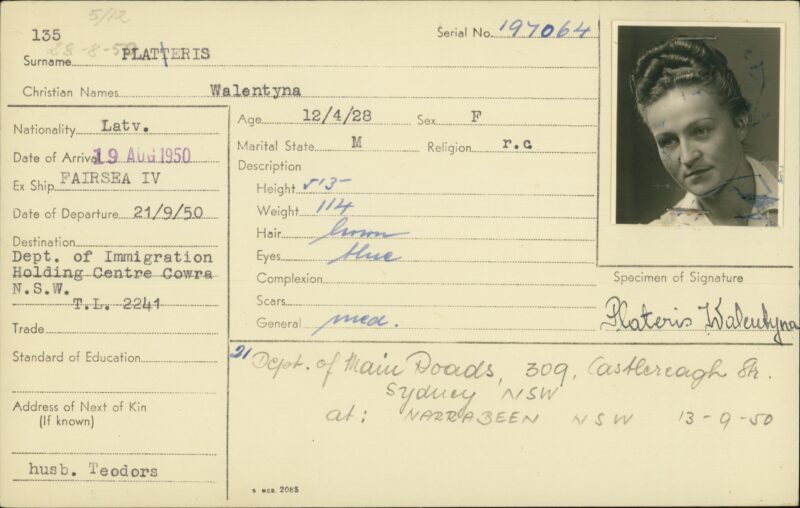 5/12
135
28-8-50
Serial No. 197064
Surname PLATTERIS
Christian Names Walentyna
Nationality Latv.
Age 12/4/28 Sex F
Marital State M Religion r.c
Date of Arrival 19 AUG 1950
Ex Ship FAIRSEA IV
Date of Departure 21/9/50
Destination
Dept. of Immigration
Holding Centre Cowra
N.S.W.
T.L. 2241
Trade
Standard of Education
Address of Next of Kin
(If known)
husb. Teodors
Description
Height 5'3"
Weight 114
Hair brown
Eyes blue
Complexion
Scars
General med.
Specimen of Signature
Plateris Walentyna
21 Dept. of Main Roads, 309, Castlereagh Str.
Sydney NSW
at: NARRABEEN NSW 13-9-50